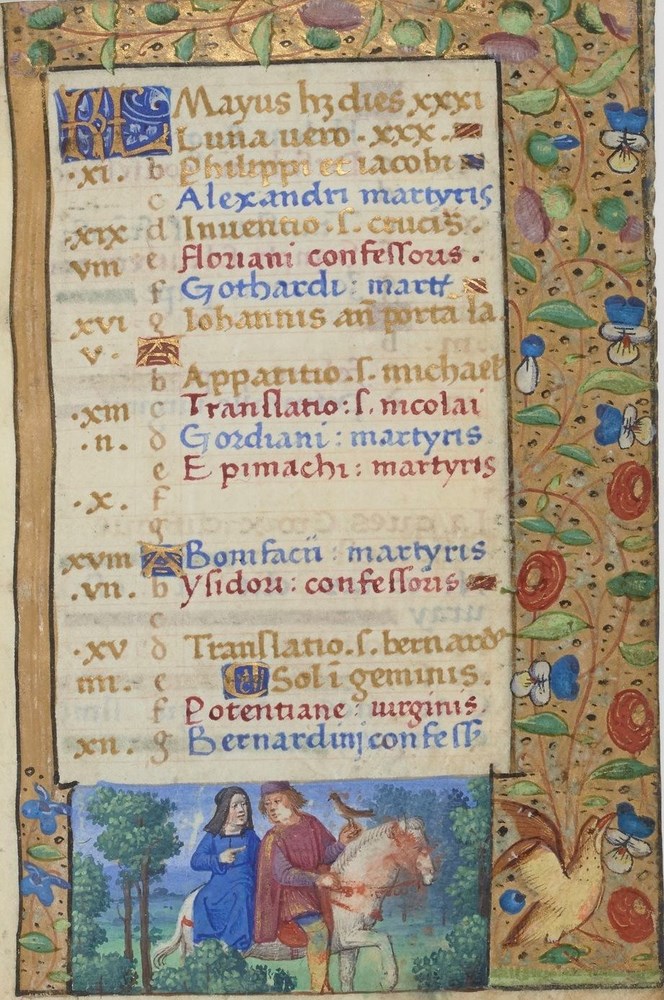 KL Mayus hz dies xxxi
Luna uero . xxx .
.xi. b Philippi et iacobi
c Alexandri martyris
.xix d Inuentio . s. crucis .
viii e Floriani confessoris .
f Gothardi : martř
xvi g Iohannis añ porta la.
v . A
b Apparitio . s. michael
.xiii c Translatio : s. nicolai
.ii. d Gordiani : martyris
e Epimachi : martyris
.x. f
g
xviii A Bonifacii : martyris
.vii. b Ysidori : confessoris
c
.xv d Translatio . s. bernardi
iiii . e Sol ī geminis .
f Potentiane : uirginis .
xii . g Bernardini confess